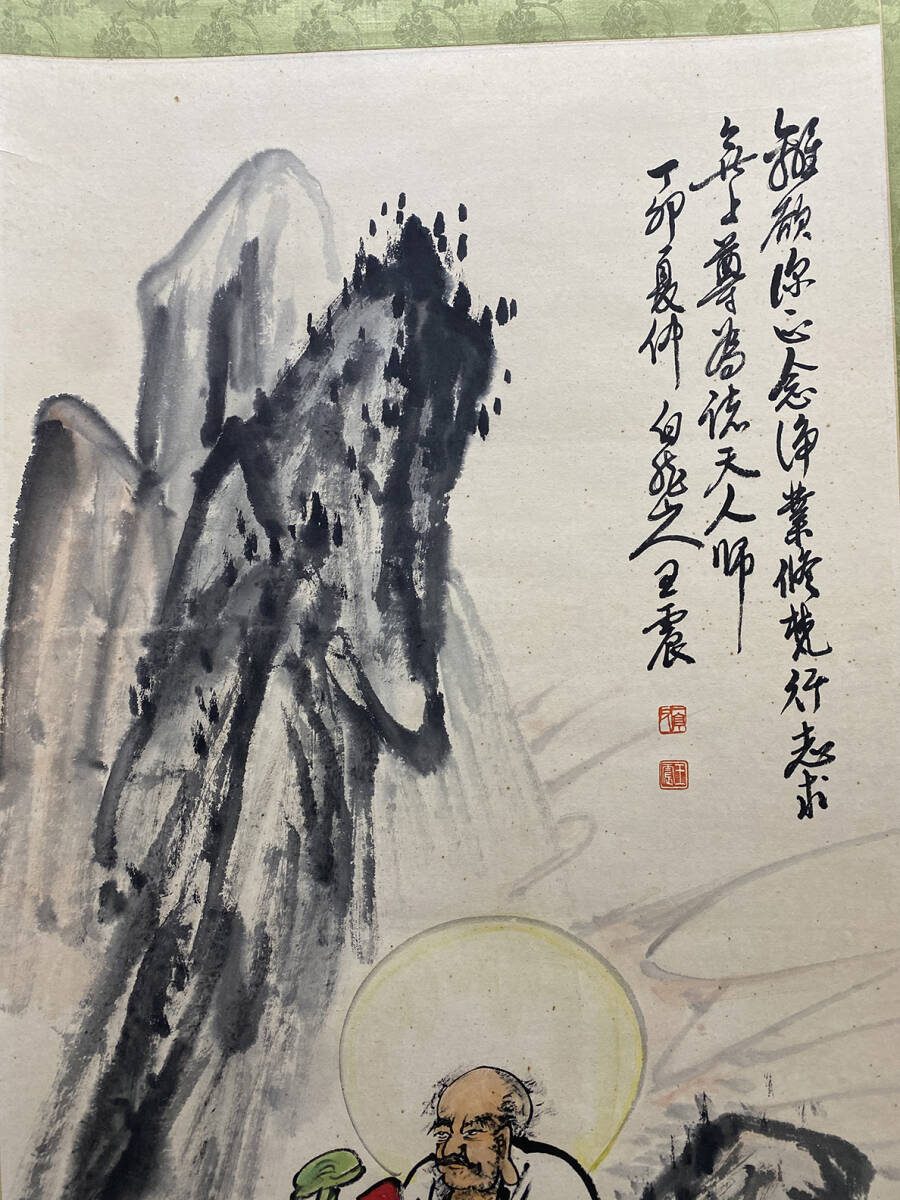 離欲深正念淨業修梵行志求
無上尊為諸天人師
丁卯夏仲白龍山人王震
王震